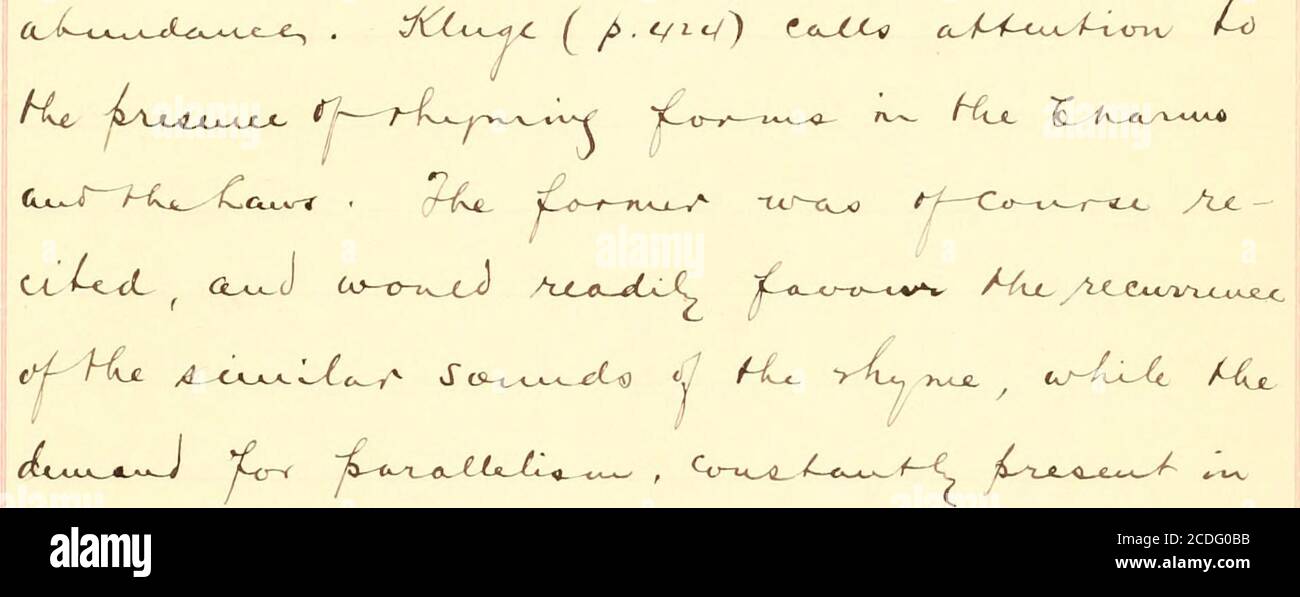 abundance. Kluge (p. 424) calls attention to
the presence of rhyming forms in the Charms
and the Laws. The former was of course re-
cited, and would readily favour the recurrence
of the similar sounds of the rhyme, while the
demand for parallelism, constantly present in
alamy
Image ID: 2CDG0BB
www.alamy.com